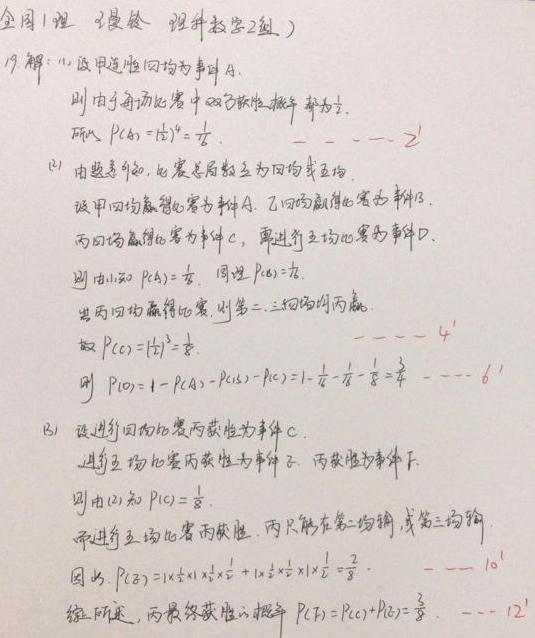 全国1理 理科数学2组)
19.解:(1)设甲连胜四场为事件A.
则由于每场比赛中双方获胜概率都为1/2.
所以 P(A)=(1/2)^4=1/16. ----2'
(2) 由题意可知,比赛总局数应为四场或五场.
设甲四场赢得比赛为事件A.乙四场赢得比赛为事件B.
丙四场赢得比赛为事件C,需进行五场比赛为事件D.
则由(1)知 P(A)=1/16. 同理P(B)=1/16.
当丙四场赢得比赛,则第二、三、四场均丙赢.
故 P(C)=(1/2)^3=1/8. ----4'
则 P(D)=1-P(A)-P(B)-P(C)=1-1/16-1/16-1/8=3/4 ----6'
(3) 设进行四场比赛丙获胜为事件C.
进行五场比赛丙获胜为事件E.丙获胜为事件F.
则由(2)知 P(C)=1/8.
而进行五场比赛丙获胜.丙只能在第二场输,或第三场输
因此.P(E)=1×1/2×1×1/2×1/2+1×1/2×1/2×1×1/2=2/8. ---10'
综上所述,丙最终获胜的概率 P(F)=P(C)+P(E)=3/8. ---12'